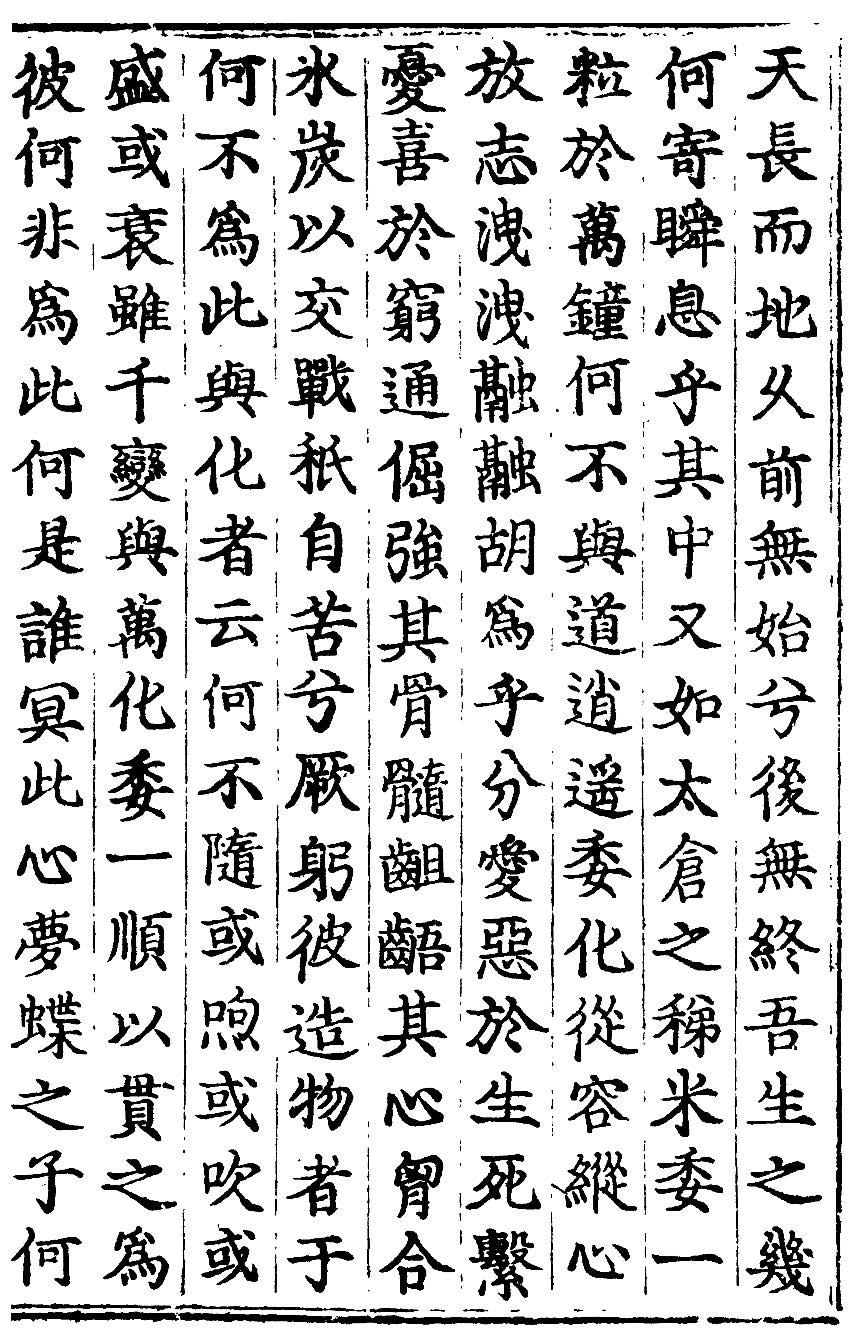 天長而地久前無始兮後無終吾生之幾
何寄瞬息乎其中又如太倉之稊米委一
粒於萬鐘何不與道逍遥委化從容縱心
放志洩洩融融胡爲乎分愛惡於生死繫
憂喜於窮通倔強其骨髓齟齬其心胷合
氷炭以交戰秖自苦兮厥躬彼造物者于
何不爲此與化者云何不隨或呴或吹或
盛或衰雖千變與萬化委一順以貫之爲
彼何非爲此何是誰冥此心夢蝶之子何